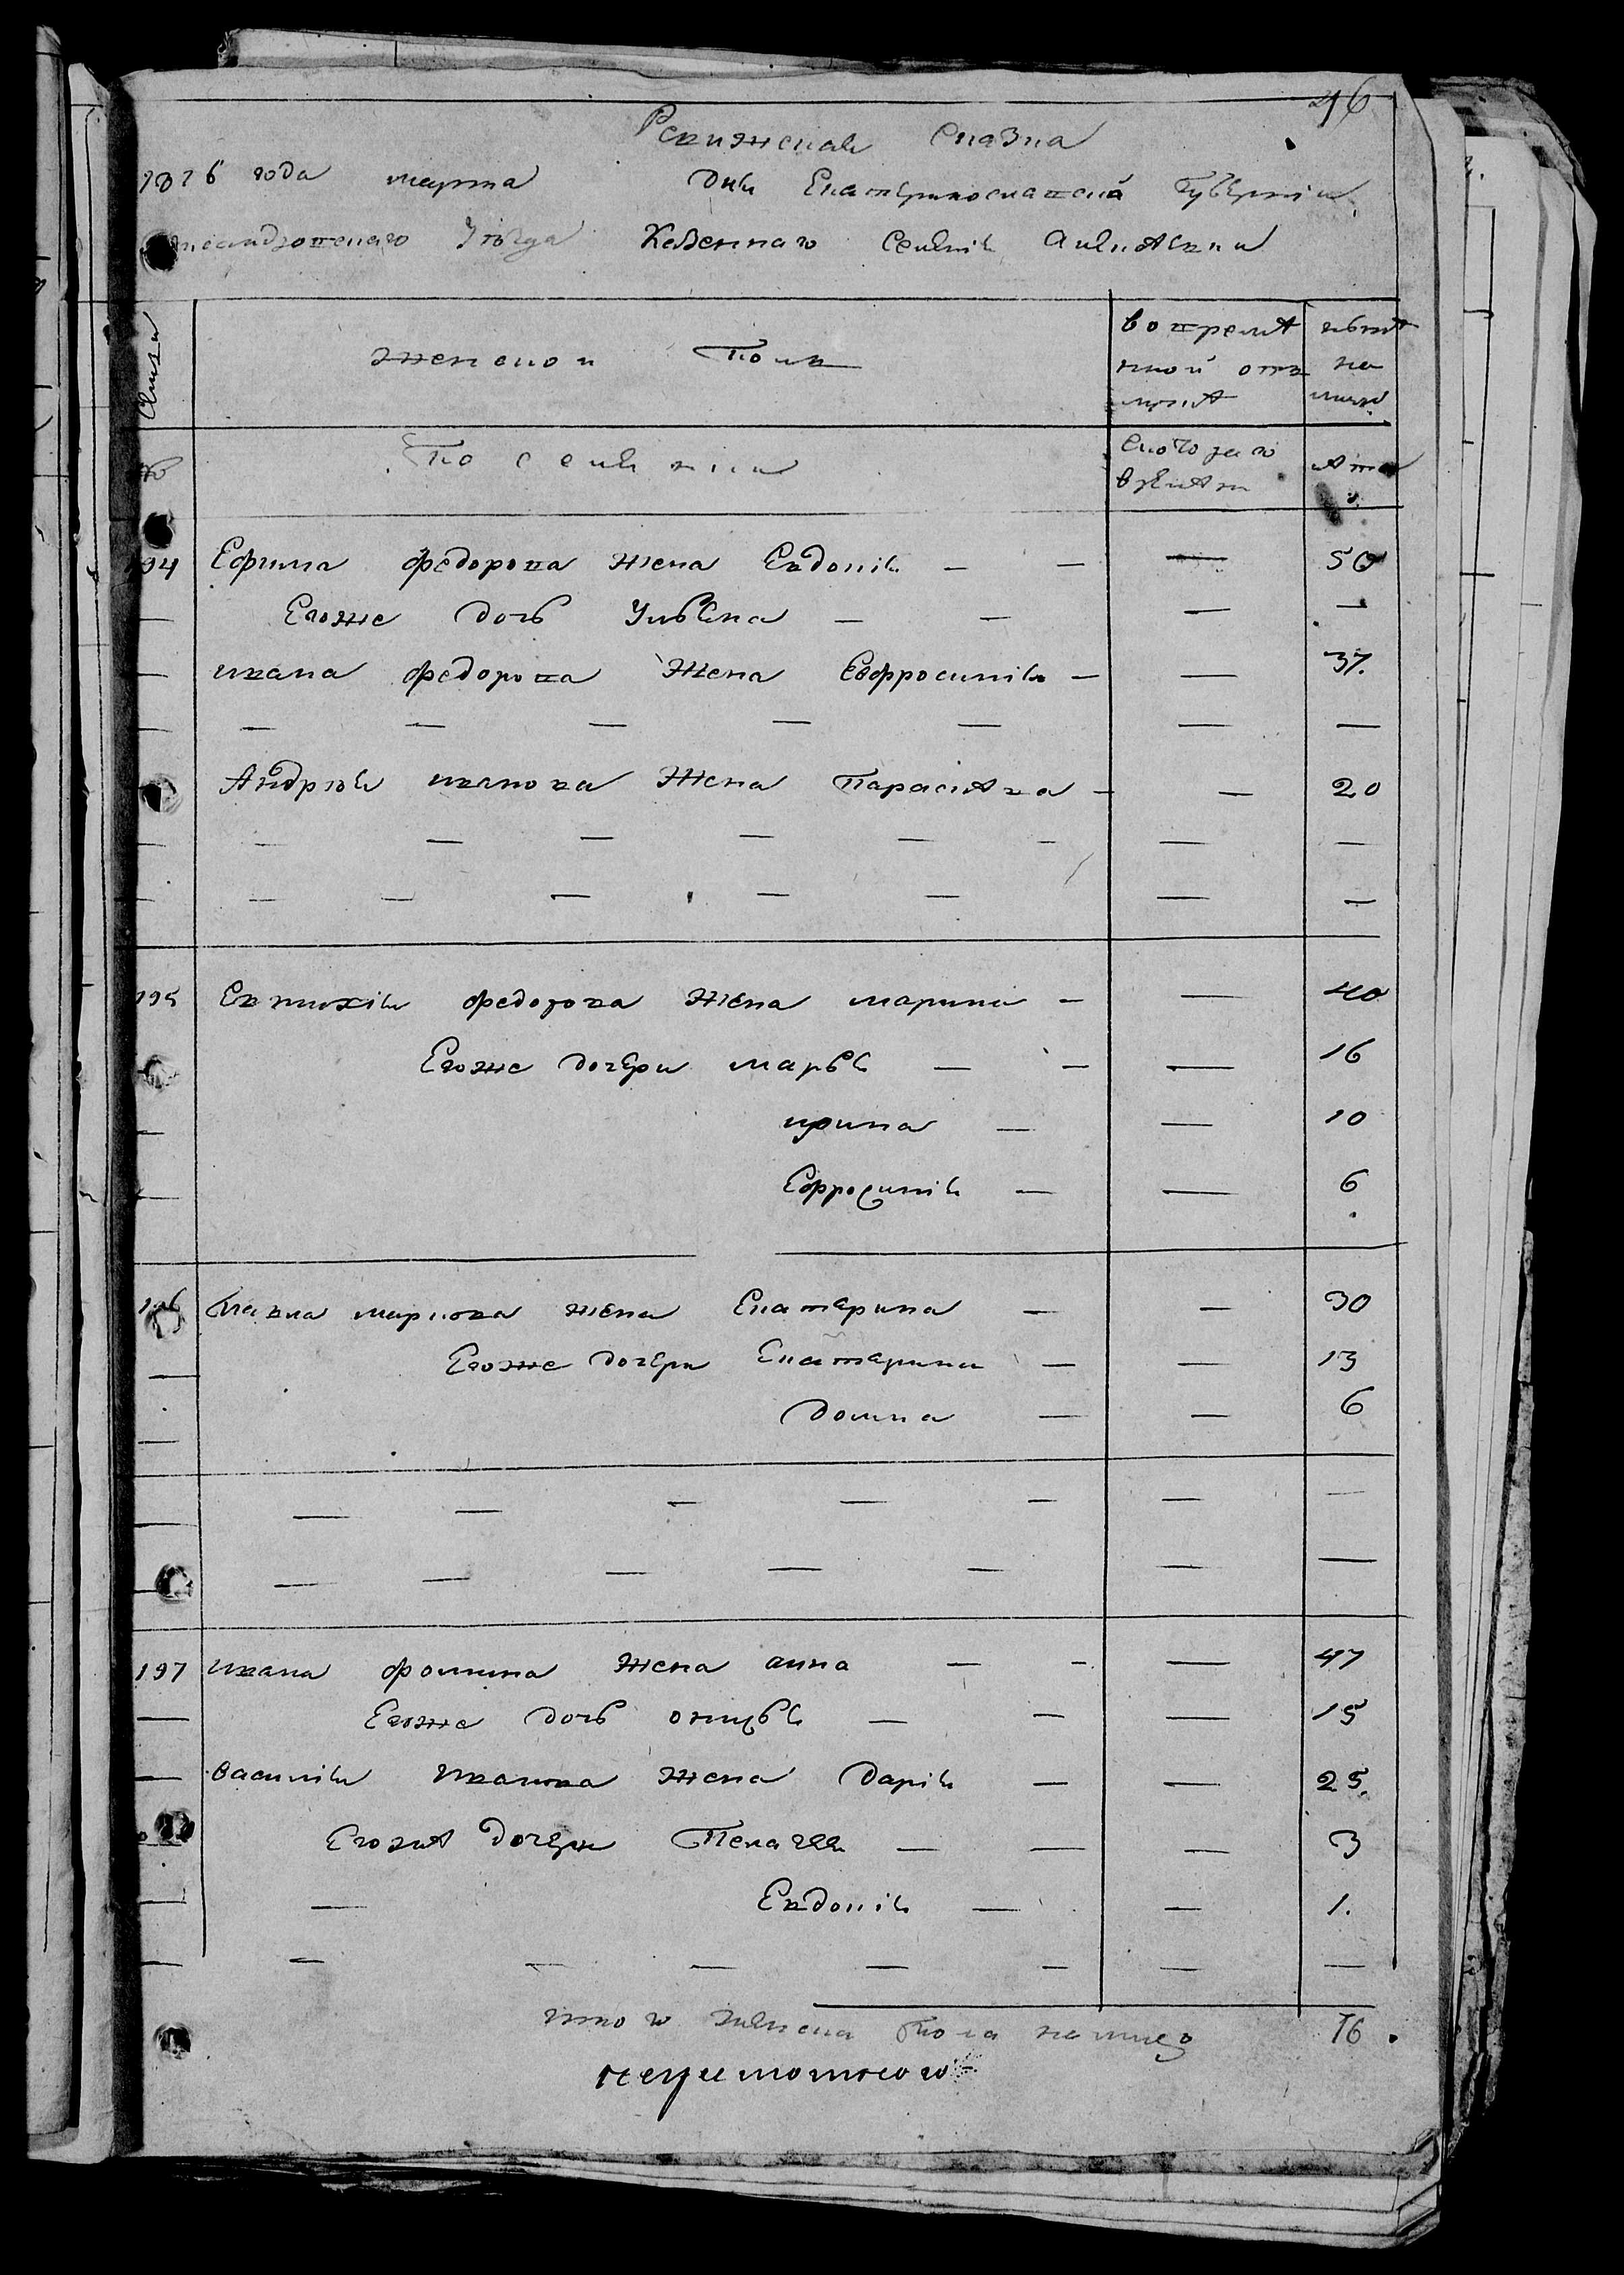 46
Ревижская Сказка
1816 года марта дня Екатеринославской Губернии
Александровскаго Уезда Казеннаго Селения
Семьи женской пол вовремя нной отлу чке ныне на лицо
№ Поселяни с которого времени лета
194 Ефима федорова жена Евдокия — — — 50
— Егоже дочь Ульяна — — — —
— ивана федорова жена Евфросиния — — 37.
— — — — — — — —
Андрея иванова жена Параскева — — 20
— — — — — — — —
— — — — — — — —
195 Евтихия федорова жена марина — — 40
Егоже дочери марья — — — 16
— ирина — — 10
— Ефросиния — — 6
196 Павла маркова жена Екатерина — — 30
— Егоже дочери Екатерина — — 13
— домна — — 6
— — — — — — — —
— — — — — — — —
197 ивана фомина жена анна — — — 47
— Егоже дочь — — — 15
— василия Иванова жена дария — — 25.
— Егоже дочери Пелагея — — — 3
— — Евдокия — — 1.
— — — — — — — —
итого женска пола налицо 16.